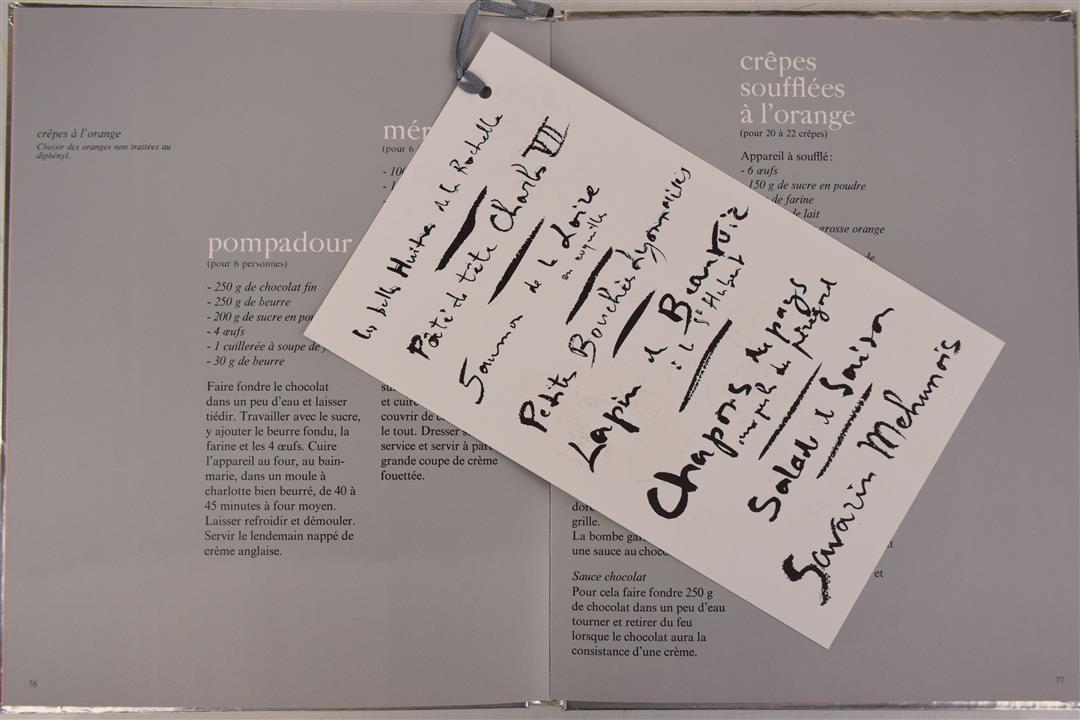 crêpes à l'orange
Choisir des oranges non traitées au
diphényl.
pompadour
(pour 6 personnes)
- 250 g de chocolat fin
- 250 g de beurre
- 200 g de sucre en
- 4 œufs
- 1 cuillerée à soupe de
- 30 g de beurre
Faire fondre le chocolat
dans un peu d'eau et laisser
tiédir. Travailler avec le sucre,
y ajouter le beurre fondu, la
farine et les 4 œufs. Cuire
l'appareil au four, au bain-
marie, dans un moule à
charlotte bien beurré, de 40 à
45 minutes à four moyen.
Laisser refroidir et démouler.
Servir le lendemain nappé de
crème anglaise.
76
(pour 6
et cuire
couvrir de
le tout. Dresser
service et servir à part
grande coupe de crème
fouettée.
les belles Huitres de la Rochelle
Pâté de tête Charles VII
Saumon de la Loire
en coquilles
Petites Bouchées Lyonnaises
Lapin de Beauvoir
à la St Hubert
Chapons du pays
du périgord
Salade de Saison
Savarin Mehunois
grille.
La bombe
une sauce au
Sauce chocolat
Pour cela faire fondre 250 g
de chocolat dans un peu d'eau
tourner et retirer du feu
lorsque le chocolat aura la
consistance d'une crème.
crêpes
soufflées
à l'orange
(pour 20 à 22 crêpes)
Appareil à soufflé:
- 6 œufs
150 g de sucre en poudre
de farine
de lait
grosse orange
de
et
77